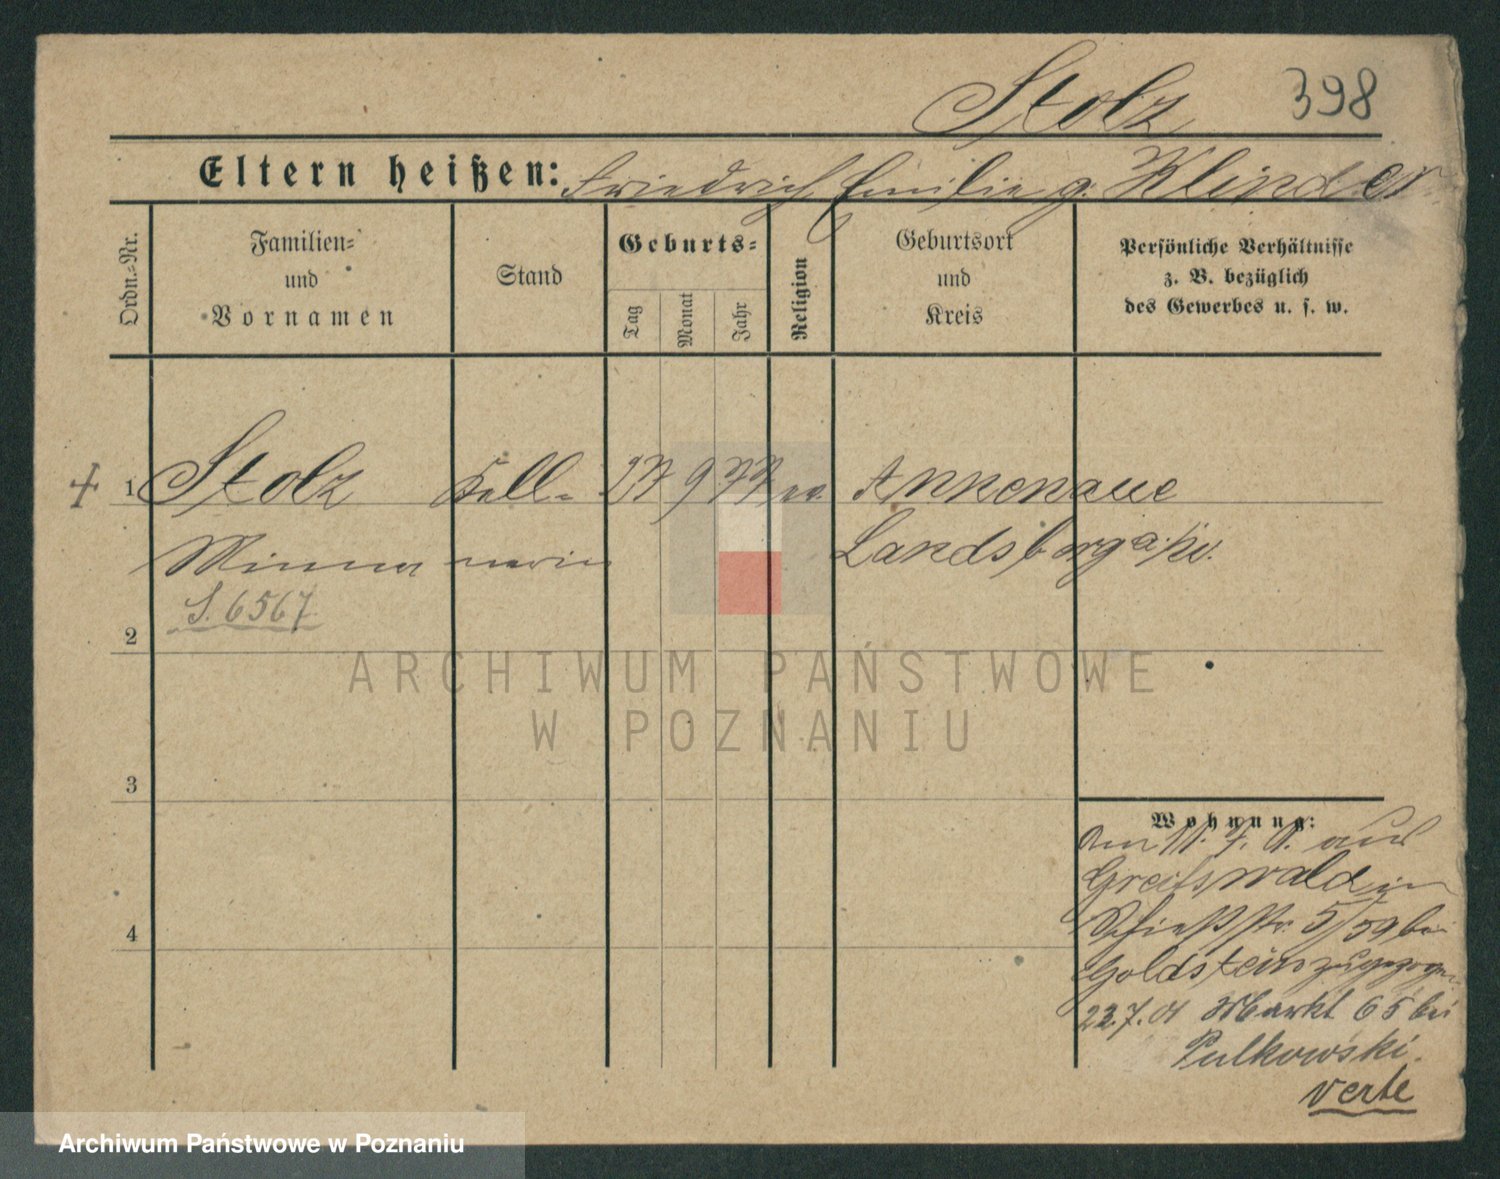 Stolz 398
Eltern heißen: Friedrich, Emilie g. Klinder
Ordn.-Nr.
Familien-
und
Vornamen
Stand
Geburts-
Tag
Monat
Jahr
Religion
Geburtsort
und
Kreis
Persönliche Verhältnisse
z. B. bezüglich
des Gewerbes u. s. w.
1 Stolz Kell- 27 9 77 ev. Annenaue
Minna nerin Landsberg a/W.
S. 6567
2
3
4
ARCHIWUM PAŃSTWOWE
W POZNANIU
Wohnung:
Am 11. 7. 01. aus
Greifswald in
Schießstr. 5/59 bei
Goldstein zugezogen
22.7.01 Markt 65 bei
Pulkowski.
verte
Archiwum Państwowe w Poznaniu